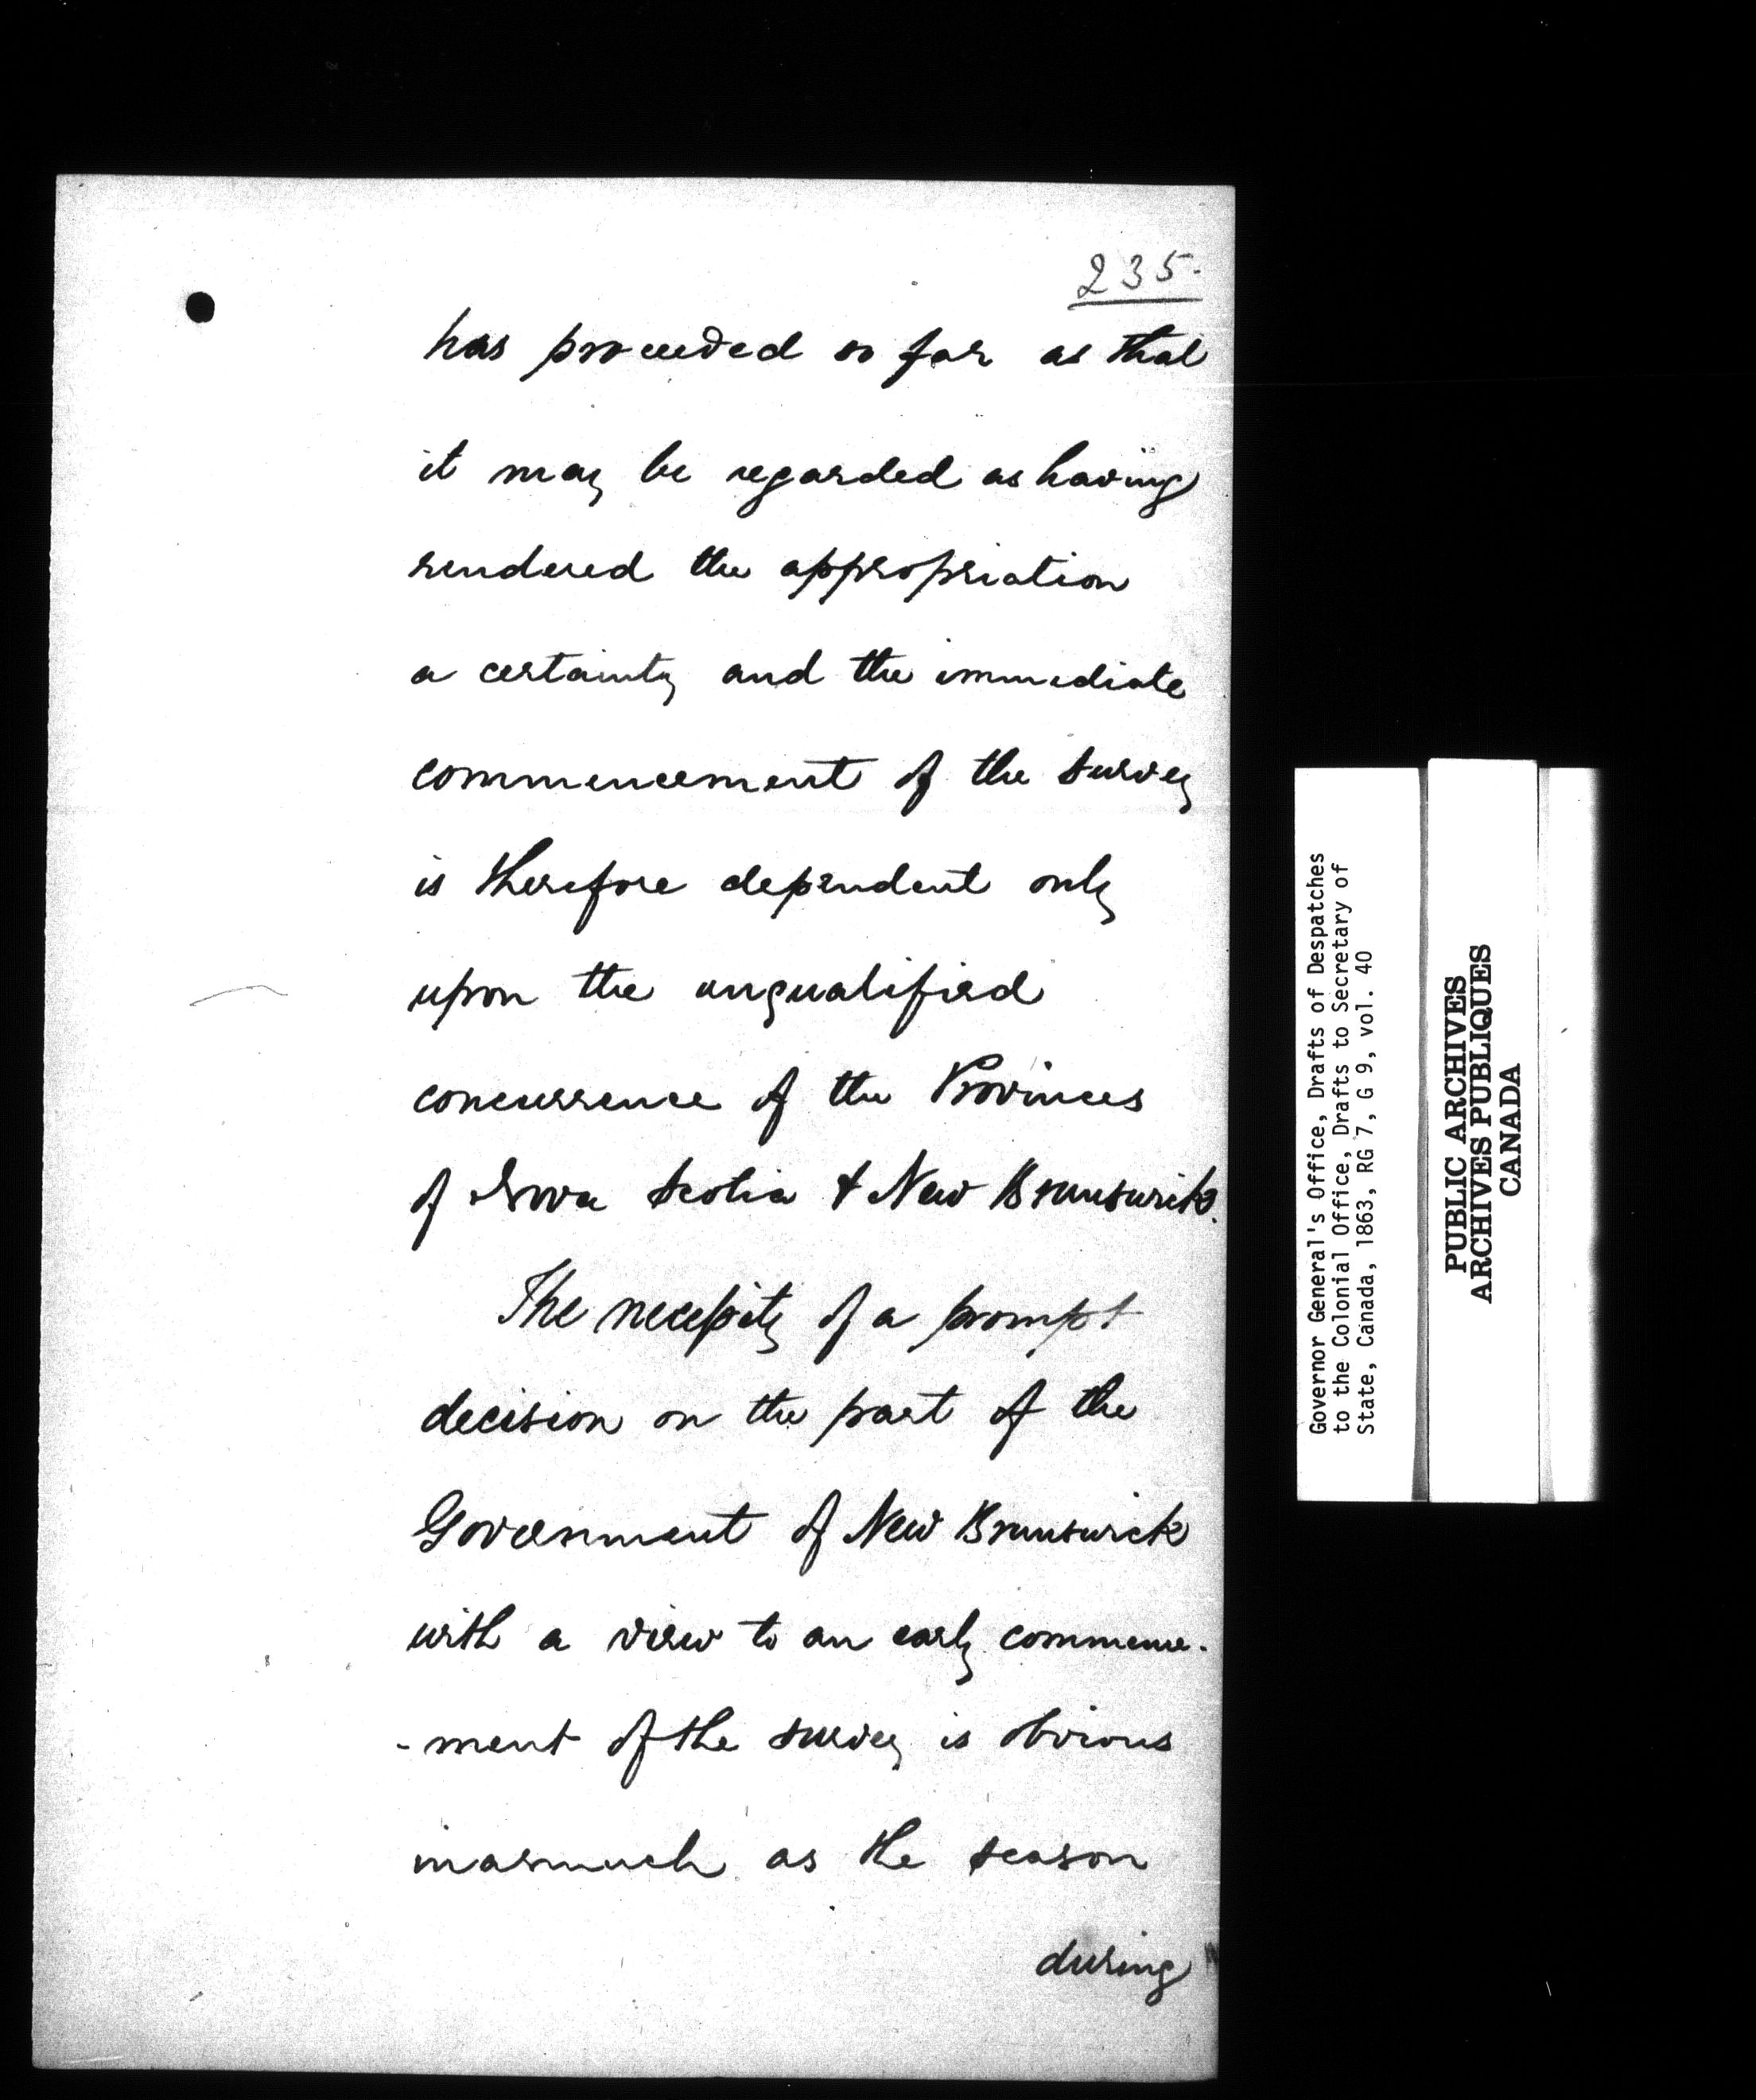 235.
has proceeded so far as that
it may be regarded as having
rendered the appropriation
a certainty and the immediate
commencement of the survey
is therefore dependent only
upon the unqualified
concurrence of the Provinces
of Nova Scotia & New Brunswick.
The necessity of a prompt
decision on the part of the
Government of New Brunswick
with a view to an early commence-
-ment of the survey is obvious
inasmuch as the season
during
Governor General's Office, Drafts of Despatches
to the Colonial Office, Drafts to Secretary of
State, Canada, 1863, RG 7, G 9, vol. 40
PUBLIC ARCHIVES
ARCHIVES PUBLIQUES
CANADA